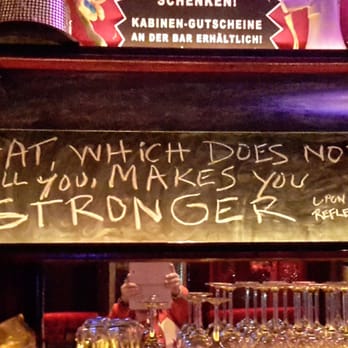 SCHENKEN!
KABINEN-GUTSCHEINE
AN DER BAR ERHÄLTLICH!
AT, WHICH DOES NO
LL YOU, MAKES YOU
STRONGER
UPON
REFLE